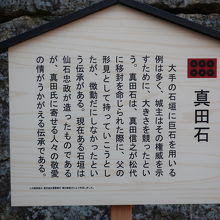 真田石
大手の石垣に巨石を用いる
例は多く、城主はその権威を示
すために、大きさを競ったとい
う。真田石は、真田信之が松代
に移封を命じられた際に、父の
形見として持っていこうとし
たが、微動だにしなかったとい
う伝承がある。現在ある石垣は
仙石忠政が造ったものである
が、真田氏に寄せる人々の敬愛
の情がうかがえる伝承である。